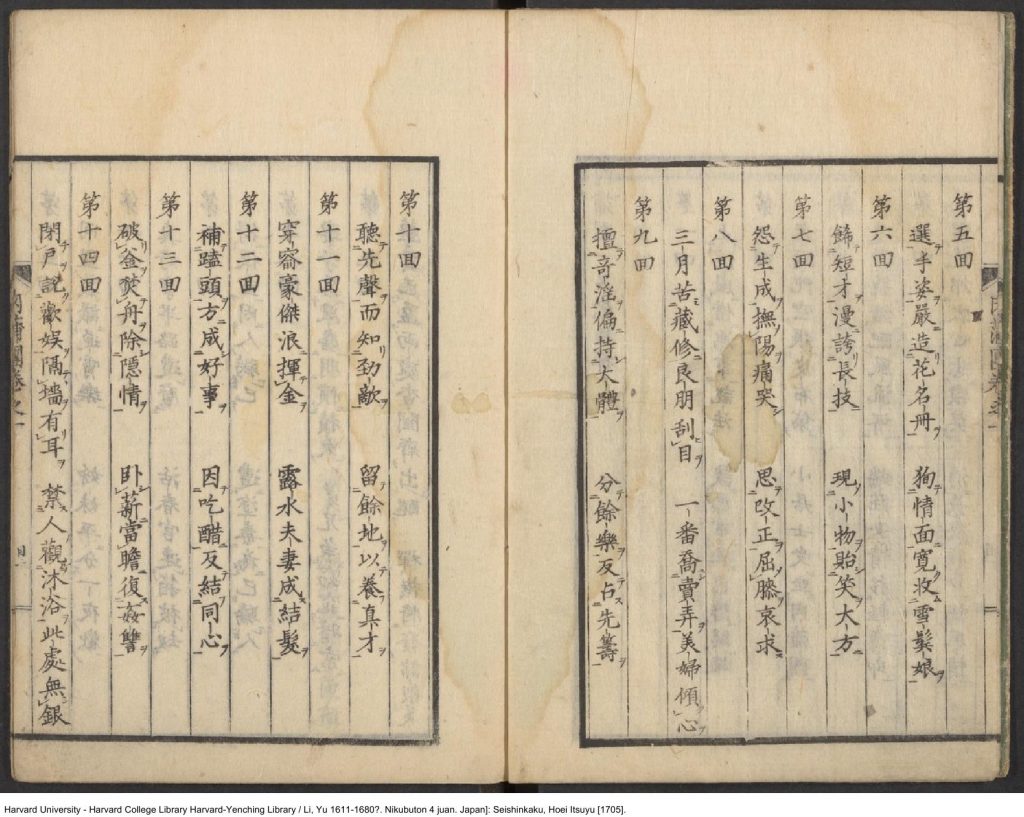 第五回
選手姿嚴造花名册　狥情面寛收雪鬂娘
第六回
餙短才漫誇長技　現小物貽笑大方
第七回
怨生成撫陽痛哭　思改正屈膝哀求
第八回
三月苦藏修良朋刮目　一番喬賣弄美婦傾心
第九回
擅奇淫偏持大體　分餘樂反占先籌
第十回
聽先聲而知勁敵　留餘地以養真才
第十一回
穿窬豪傑浪揮金　露水夫妻成結髮
第十二回
補頭方成好事　因吃醋反結同心
第十三回
破釡焚舟除隱情　卧薪當膽復姦讐
第十四回
閉戸說歡娯隔墻有耳　禁人觀沐浴此處無銀
肉蒲團卷之一
Harvard University - Harvard College Library Harvard-Yenching Library / Li, Yu 1611-1680?. Nikubuton 4 juan. Japan]: Seishinkaku, Hoei Itsuyu [1705].